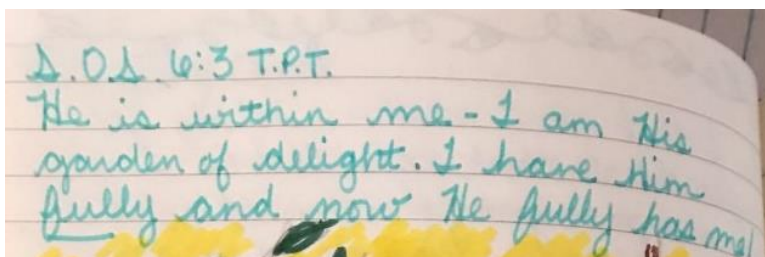 S.O.S. 6:3 T.P.T.
He is within me - I am His
garden of delight. I have Him
fully and now He fully has me!